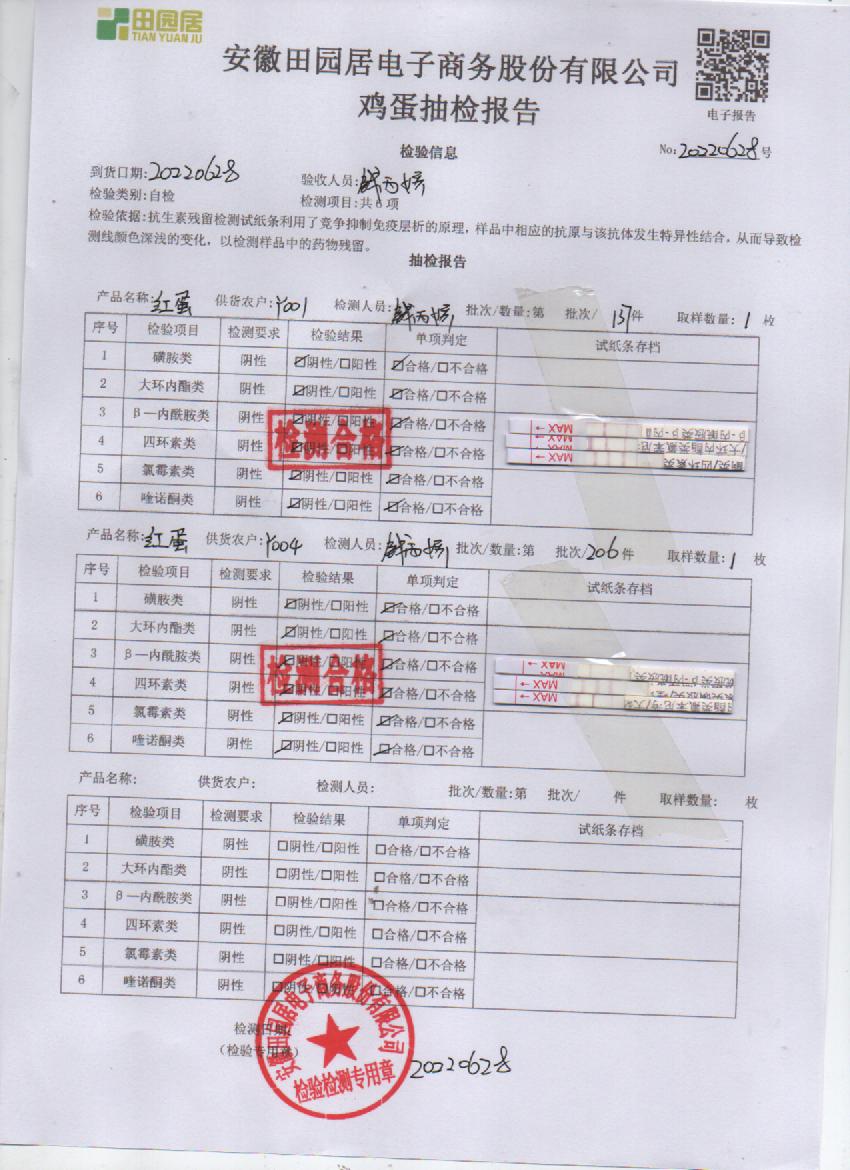 田园居
TIAN YUAN JU
安徽田园居电子商务股份有限公司
鸡蛋抽检报告
电子报告
检验信息
No:20220628号
到货日期:20220628 验收人员:
检验类别:自检 检测项目:共6项
检验依据:抗生素残留检测试纸条利用了竞争抑制免疫层析的原理,样品中相应的抗原与该抗体发生特异性结合,从而导致检
测线颜色深浅的变化,以检测样品中的药物残留。
抽检报告
产品名称:红蛋 供货农户:Y001 检测人员: 批次/数量:第 批次/137件 取样数量:1枚
序号 检验项目 检测要求 检验结果 单项判定 试纸条存档
1 磺胺类 阴性 ☑阴性/☐阳性 ☑合格/☐不合格
2 大环内酯类 阴性 ☑阴性/☐阳性 ☑合格/☐不合格
3 β—内酰胺类 阴性 ☑阴性/☐阳性 ☑合格/☐不合格
4 四环素类 阴性 ☑阴性/☐阳性 ☑合格/☐不合格
5 氯霉素类 阴性 ☑阴性/☐阳性 ☑合格/☐不合格
6 喹诺酮类 阴性 ☑阴性/☐阳性 ☑合格/☐不合格
检测合格
MAX
MAX
MAX
产品名称:红蛋 供货农户:Y004 检测人员: 批次/数量:第 批次/206件 取样数量:1枚
序号 检验项目 检测要求 检验结果 单项判定 试纸条存档
1 磺胺类 阴性 ☑阴性/☐阳性 ☑合格/☐不合格
2 大环内酯类 阴性 ☑阴性/☐阳性 ☑合格/☐不合格
3 β—内酰胺类 阴性 ☑阴性/☐阳性 ☑合格/☐不合格
4 四环素类 阴性 ☑阴性/☐阳性 ☑合格/☐不合格
5 氯霉素类 阴性 ☑阴性/☐阳性 ☑合格/☐不合格
6 喹诺酮类 阴性 ☑阴性/☐阳性 ☑合格/☐不合格
检测合格
MAX
MAX
MAX
产品名称: 供货农户: 检测人员: 批次/数量:第 批次/ 件 取样数量: 枚
序号 检验项目 检测要求 检验结果 单项判定 试纸条存档
1 磺胺类 阴性 ☐阴性/☐阳性 ☐合格/☐不合格
2 大环内酯类 阴性 ☐阴性/☐阳性 ☐合格/☐不合格
3 β—内酰胺类 阴性 ☐阴性/☐阳性 ☐合格/☐不合格
4 四环素类 阴性 ☐阴性/☐阳性 ☐合格/☐不合格
5 氯霉素类 阴性 ☐阴性/☐阳性 ☐合格/☐不合格
6 喹诺酮类 阴性 ☐阴性/☐阳性 ☐合格/☐不合格
检测日期:
(检验专用章)
安徽田园居电子商务股份有限公司
检验检测专用章
20220628